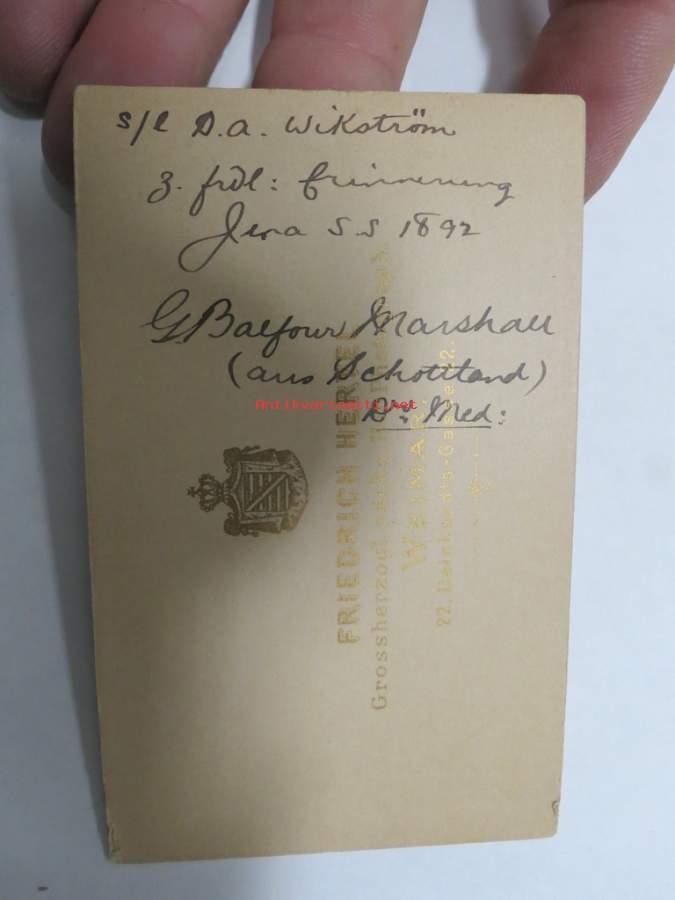 s/l D.A. Wikström
z. frdl: Erinnerung
Jena S.S 1892
G Balfour Marshall
(aus Schottland)
Dr. Med:
Antikvariaatti.net
FRIEDRICH HERTEL
Grossherzogl.
WEIMAR.
22.